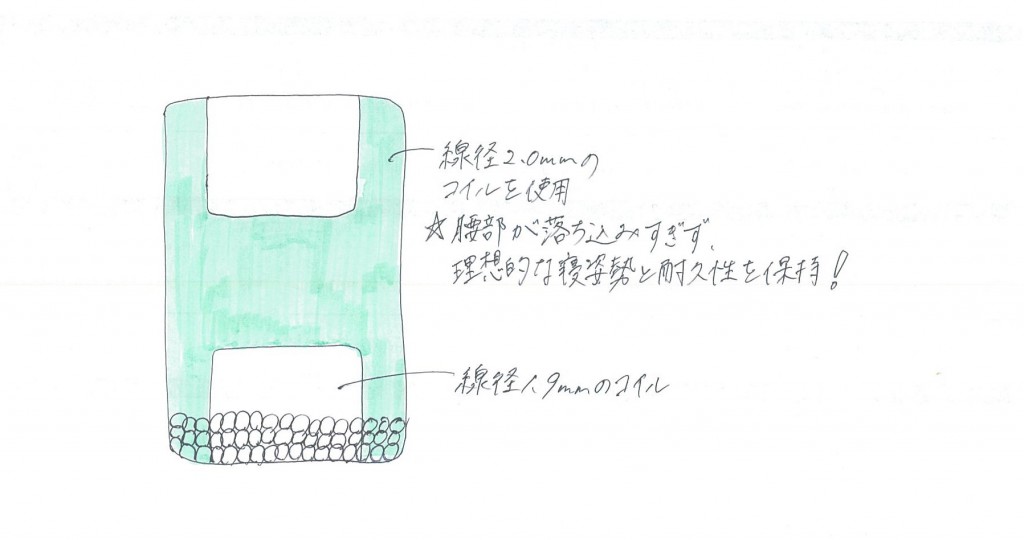 線径2.0mmの
コイルを使用
☆腰部が落ち込みすぎず、
理想的な寝姿勢と耐久性を保持！
線径1.9mmのコイル